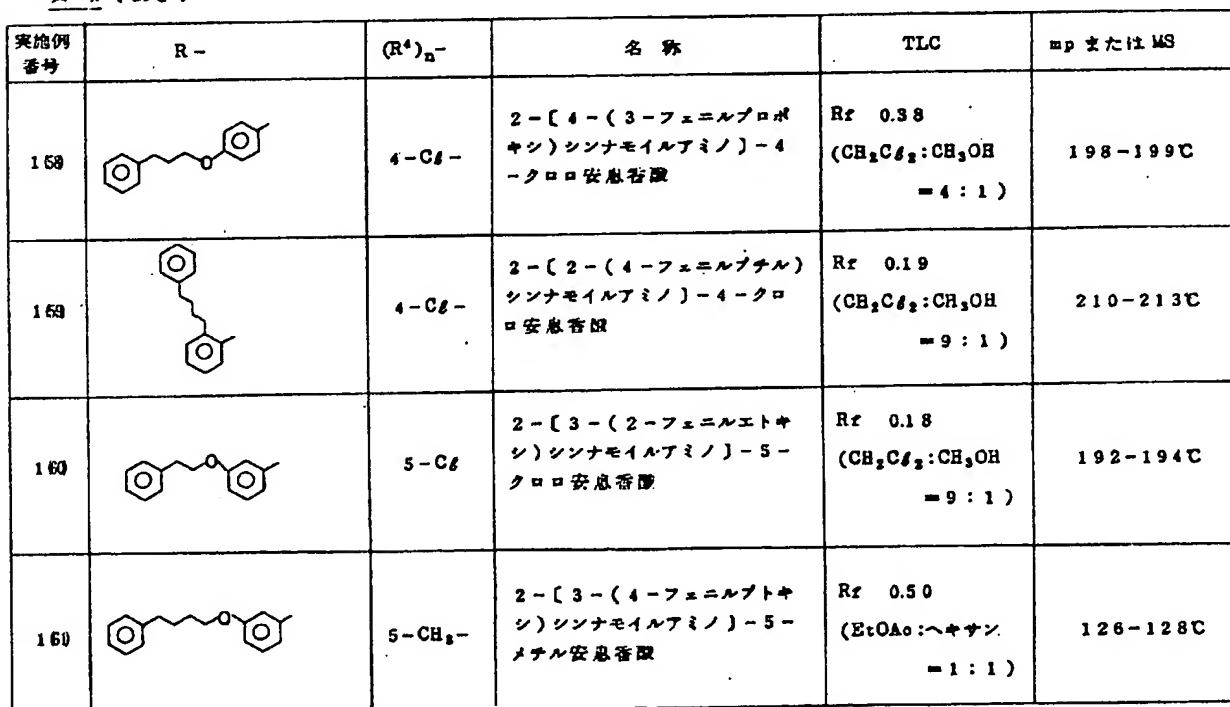 実施例
番号
R -
(R⁴)ₙ-
名 称
TLC
mp または MS
158
4-Cℓ-
2-〔4-(3-フェニルプロポ
キシ)シンナモイルアミノ〕-4
-クロロ安息香酸
Rf 0.38
(CH₂Cℓ₂:CH₃OH
=4:1)
198-199℃
159
4-Cℓ-
2-〔2-(4-フェニルブチル)
シンナモイルアミノ〕-4-クロ
ロ安息香酸
Rf 0.19
(CH₂Cℓ₂:CH₃OH
=9:1)
210-213℃
160
O
5-Cℓ
2-〔3-(2-フェニルエトキ
シ)シンナモイルアミノ〕-5-
クロロ安息香酸
Rf 0.18
(CH₂Cℓ₂:CH₃OH
=9:1)
192-194℃
161
O
5-CH₃-
2-〔3-(4-フェニルブトキ
シ)シンナモイルアミノ〕-5-
メチル安息香酸
Rf 0.50
(EtOAc:ヘキサン
=1:1)
126-128℃